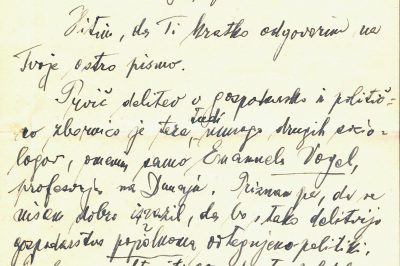 Hitim, da Ti kratko odgovorim na
Tvoje ostro pismo.
Prvič delitev v gospodarsko in politič-
no zbornico je teza tudi mnogo drugih socio-
logov, omenim samo Emanuela Vogel,
profesorja na Dunaju. Priznam pa, da se
nisem dobro izrazil, da bo s tako delitvijo
gospodarstvo popolnoma odtegnjeno politiki.